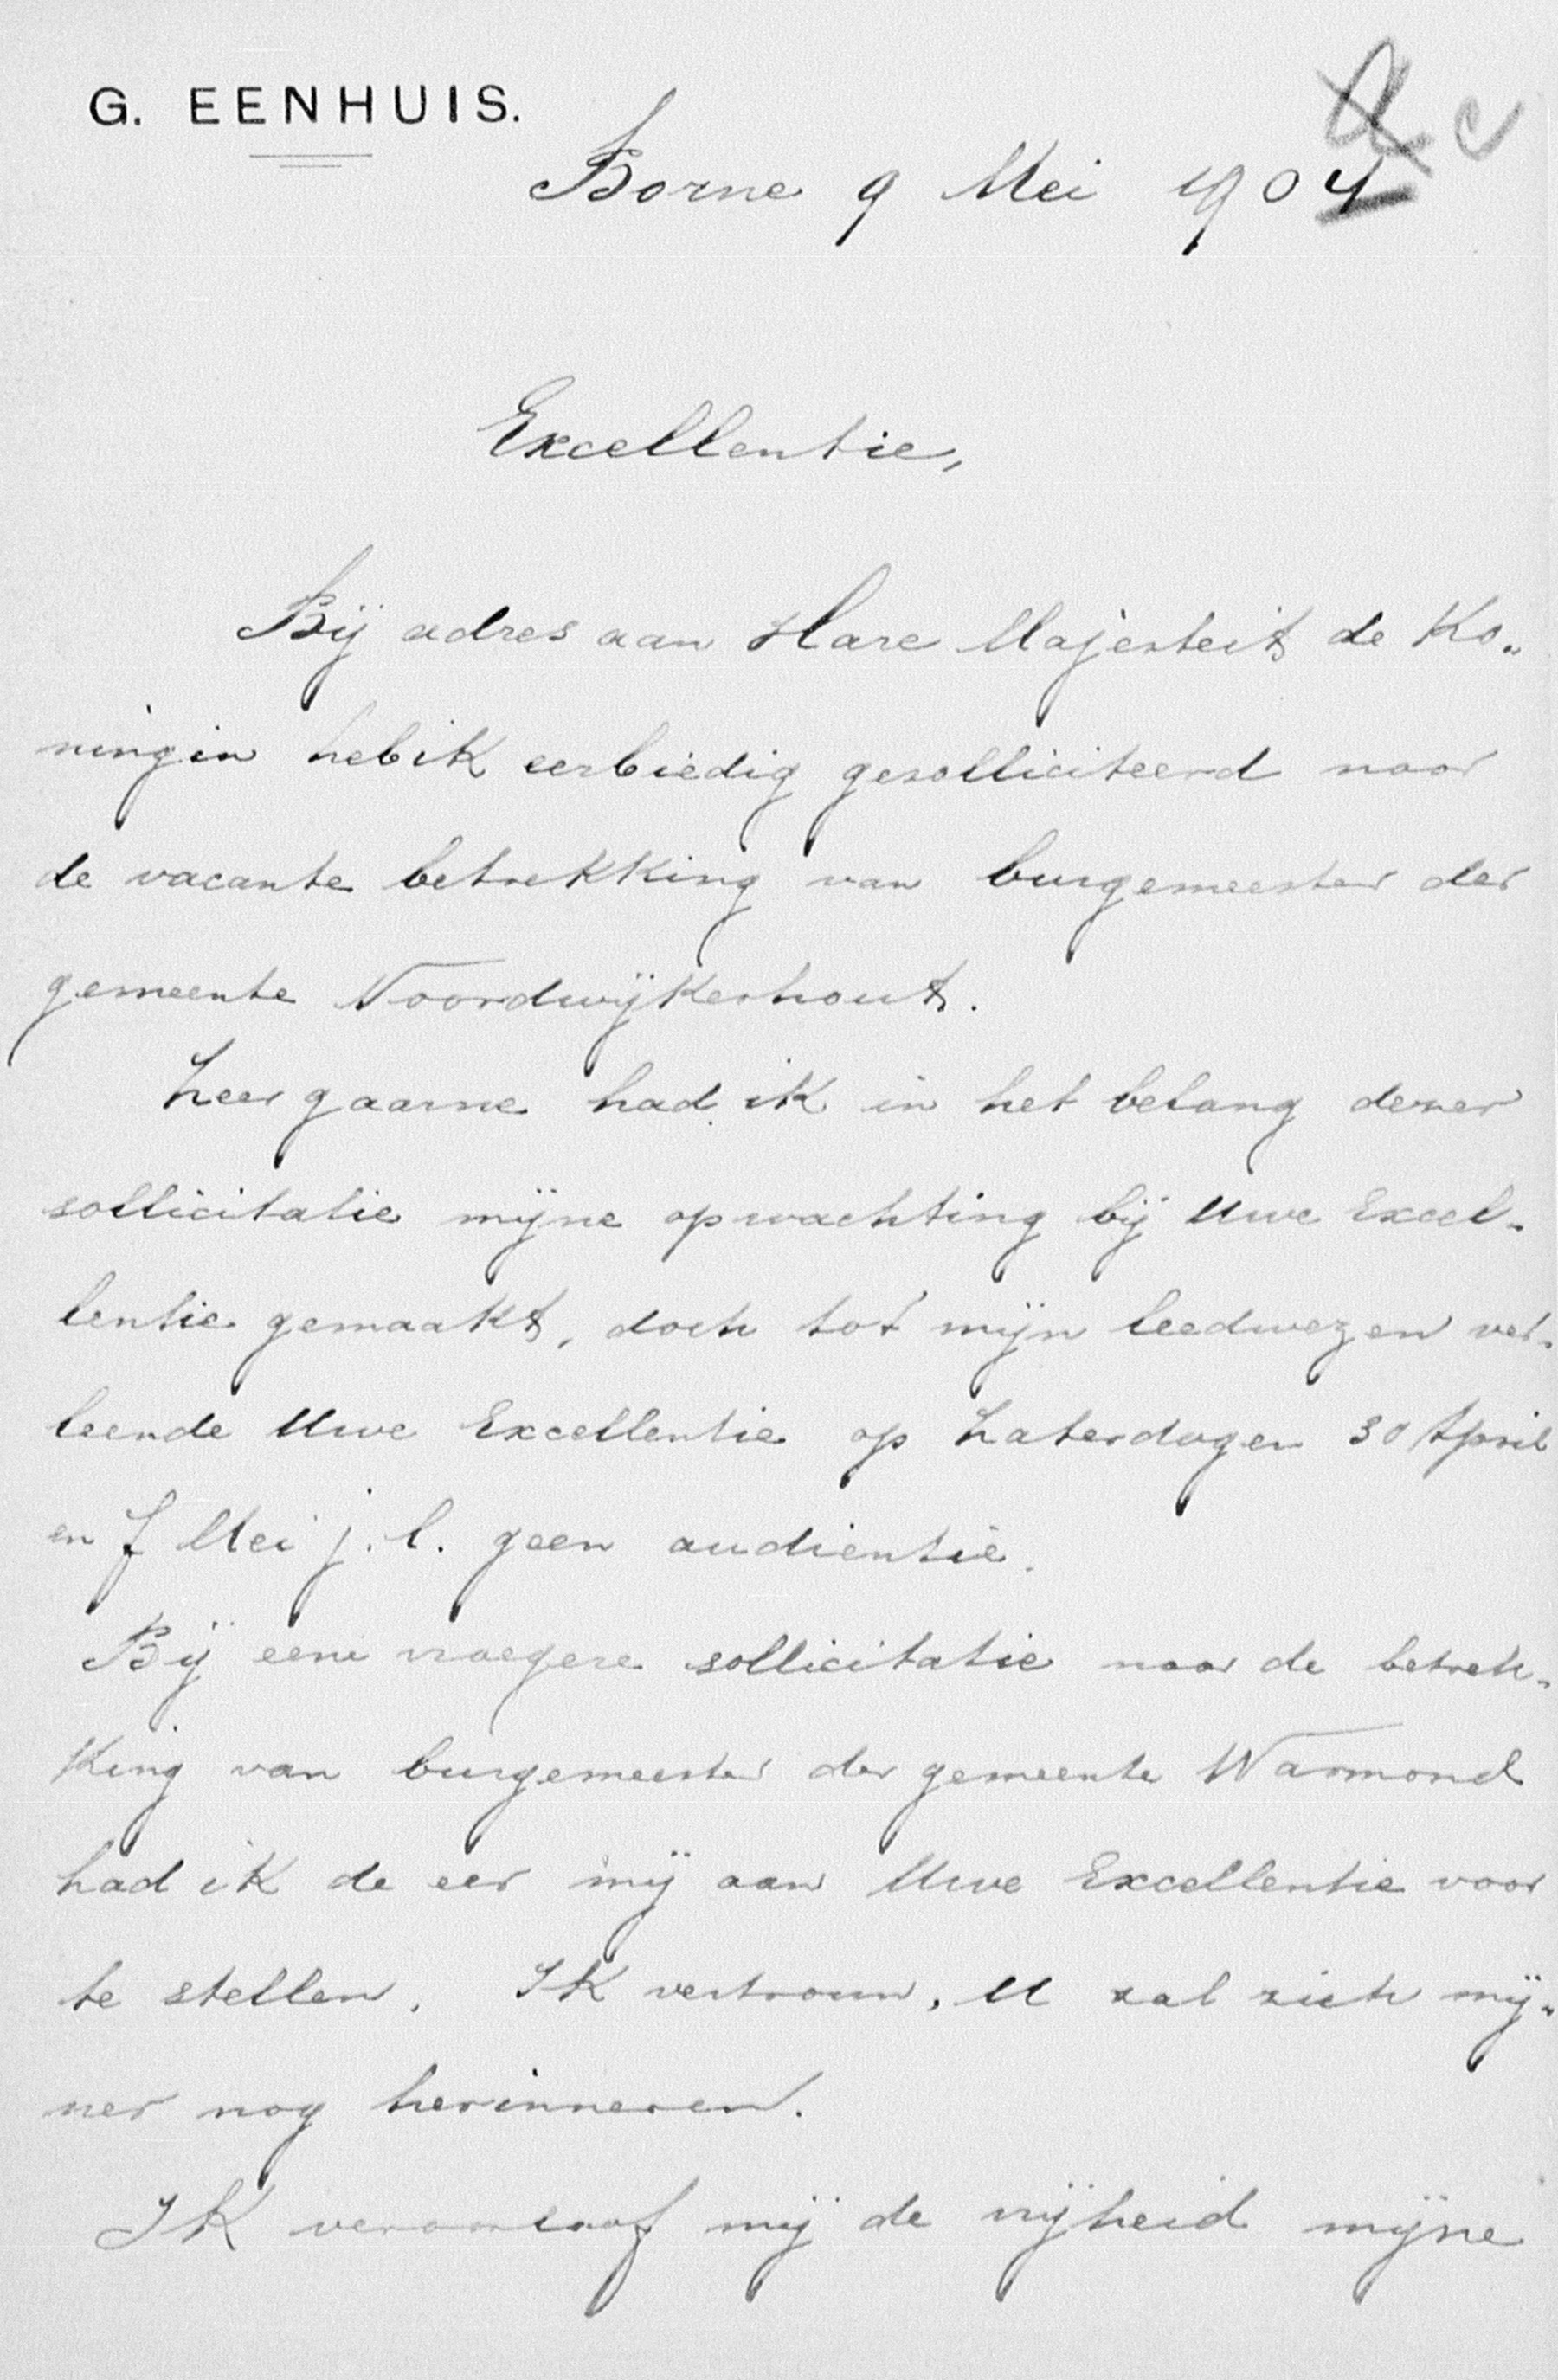 G. EENHUIS.
Borne 9 Mei 1904
Excellentie,
Bij adres aan Hare Majesteit de Ko„
ningin heb ik eerbiedig gesolliciteerd naar
de vacante betrekking van burgemeester der
gemeente Noordwijkerhout.
Zeer gaarne had ik in het belang dezer
sollicitatie mijne opwachting bij Uwe Excel-
lentie gemaakt, doch tot mijn leedwezen ver-
leende Uwe Excellentie op Zaterdagen 30 April
en 7 Mei j.l. geen audientie.
Bij eene vroegere sollicitatie naar de betrek-
king van burgemeester der gemeente Warmond
had ik de eer mij aan Uwe Excellentie voor
te stellen. Ik vertrouw, U zal zich mij„
ner nog herinneren.
Ik veroorloof mij de vrijheid mijne